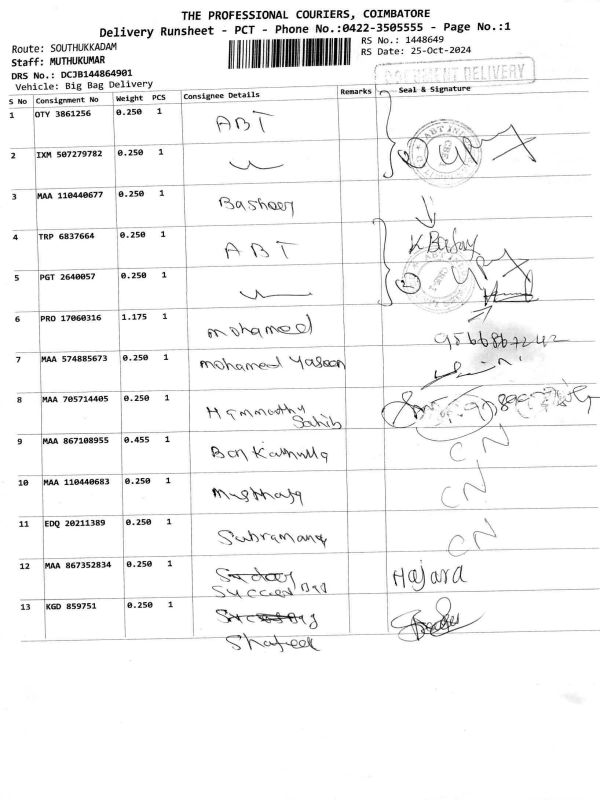 THE PROFESSIONAL COURIERS, COIMBATORE
Delivery Runsheet - PCT - Phone No.:0422-3505555 - Page No.:1
Route: SOUTHUKKADAM
RS No.: 1448649
Staff: MUTHUKUMAR
RS Date: 25-Oct-2024
DRS No.: DCJB144864901
DOCUMENT DELIVERY
Vehicle: Big Bag Delivery
S No Consignment No Weight PCS Consignee Details Remarks Seal & Signature
1 OTY 3861256 0.250 1 ABT
2 IXM 507279782 0.250 1
3 MAA 110440677 0.250 1 Basheer
4 TRP 6837664 0.250 1 ABT
5 PGT 2640057 0.250 1
6 PRO 17060316 1.175 1 mohamed
7 MAA 574885673 0.250 1 mohamed Yaseen
8 MAA 705714405 0.250 1 Sahib
9 MAA 867108955 0.455 1 CN
10 MAA 110440683 0.250 1 Musthafa CN
11 EDQ 20211389 0.250 1 Subramany CN
12 MAA 867352834 0.250 1 Hajara
13 KGD 859751 0.250 1
Shafeek